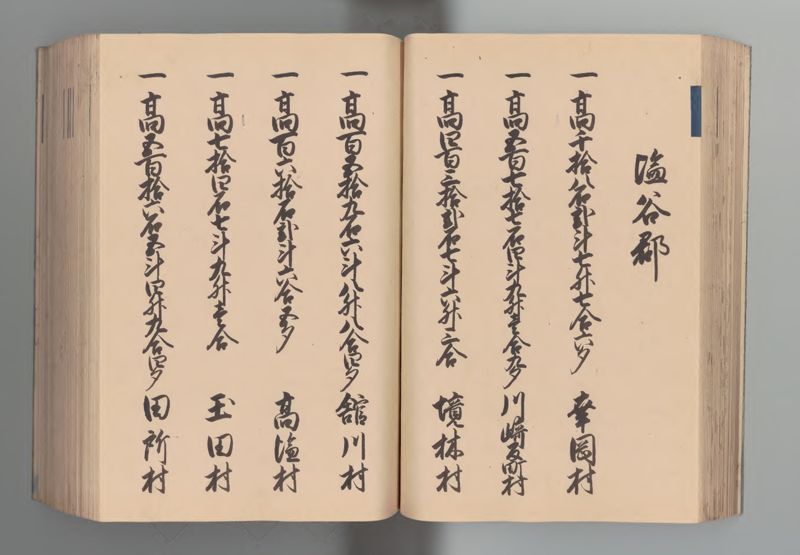 塩谷郡
一高千拾八石弐斗七升七合六夕 幸岡村
一高五百七拾七石四斗九升壱合五夕 川崎反町村
一高四百三拾弐石七斗六升三合 境林村
一高百五拾九石六斗八升八合四夕 舘川村
一高百六拾石弐斗六合五夕 高塩村
一高七拾四石七斗九升壱合 玉田村
一高五百拾八石五斗四升九合四夕 田所村